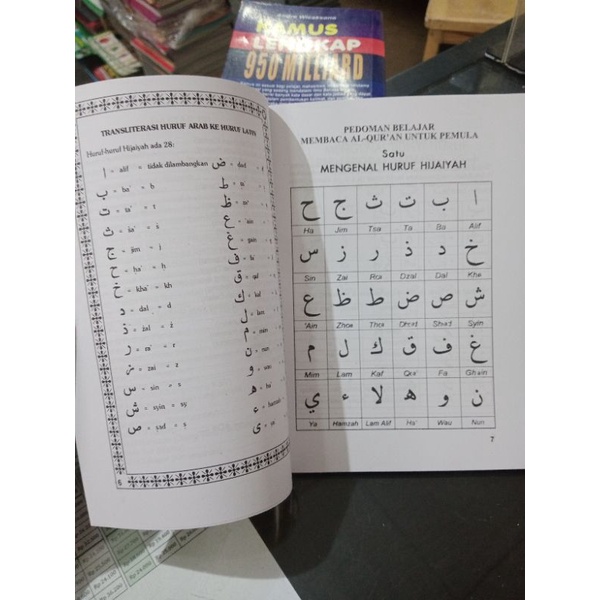 KAMUS
LENGKAP
950 MILLIARD
TRANSLITERASI HURUF ARAB KE HURUF LATIN
Huruf-huruf Hijaiyah ada 28:
ا = alif = tidak dilambangkan
ب = ba' = b
ت = ta' = t
ث = ša' = š
ج = jim = j
ح = ḥa' = ḥ
خ = kha' = kh
د = dal = d
ذ = żal = ż
ر = ra' = r
ز = zai = z
س = sin = s
ش = syin = sy
ص = ṣad = ṣ
ض = dad
ط = ta'
ظ = za'
ع = ain
غ = gain
ف = fa'
ق = qaf
ك = kaf
ل = lam
م = mim
ن = nun
و = wau
ه = ha'
ء = hamzah
ي = ya'
6
PEDOMAN BELAJAR
MEMBACA AL-QUR'AN UNTUK PEMULA
Satu
MENGENAL HURUF HIJAIYAH
ا ب ت ث ج ح
Ha Jim Tsa Ta Ba Alif
خ د ذ ر ز س
Sin Zai Rra Dzal Dal Kha
ش ص ض ط ظ ع
'Ain Zhoa Thoa Dhod Shad Syin
غ ف ق ك ل م
Mim Lam Kaf Qof Fa Ghain
ن و ه لا ء ي
Ya Hamzah Lam Alif Ha' Wau Nun
7